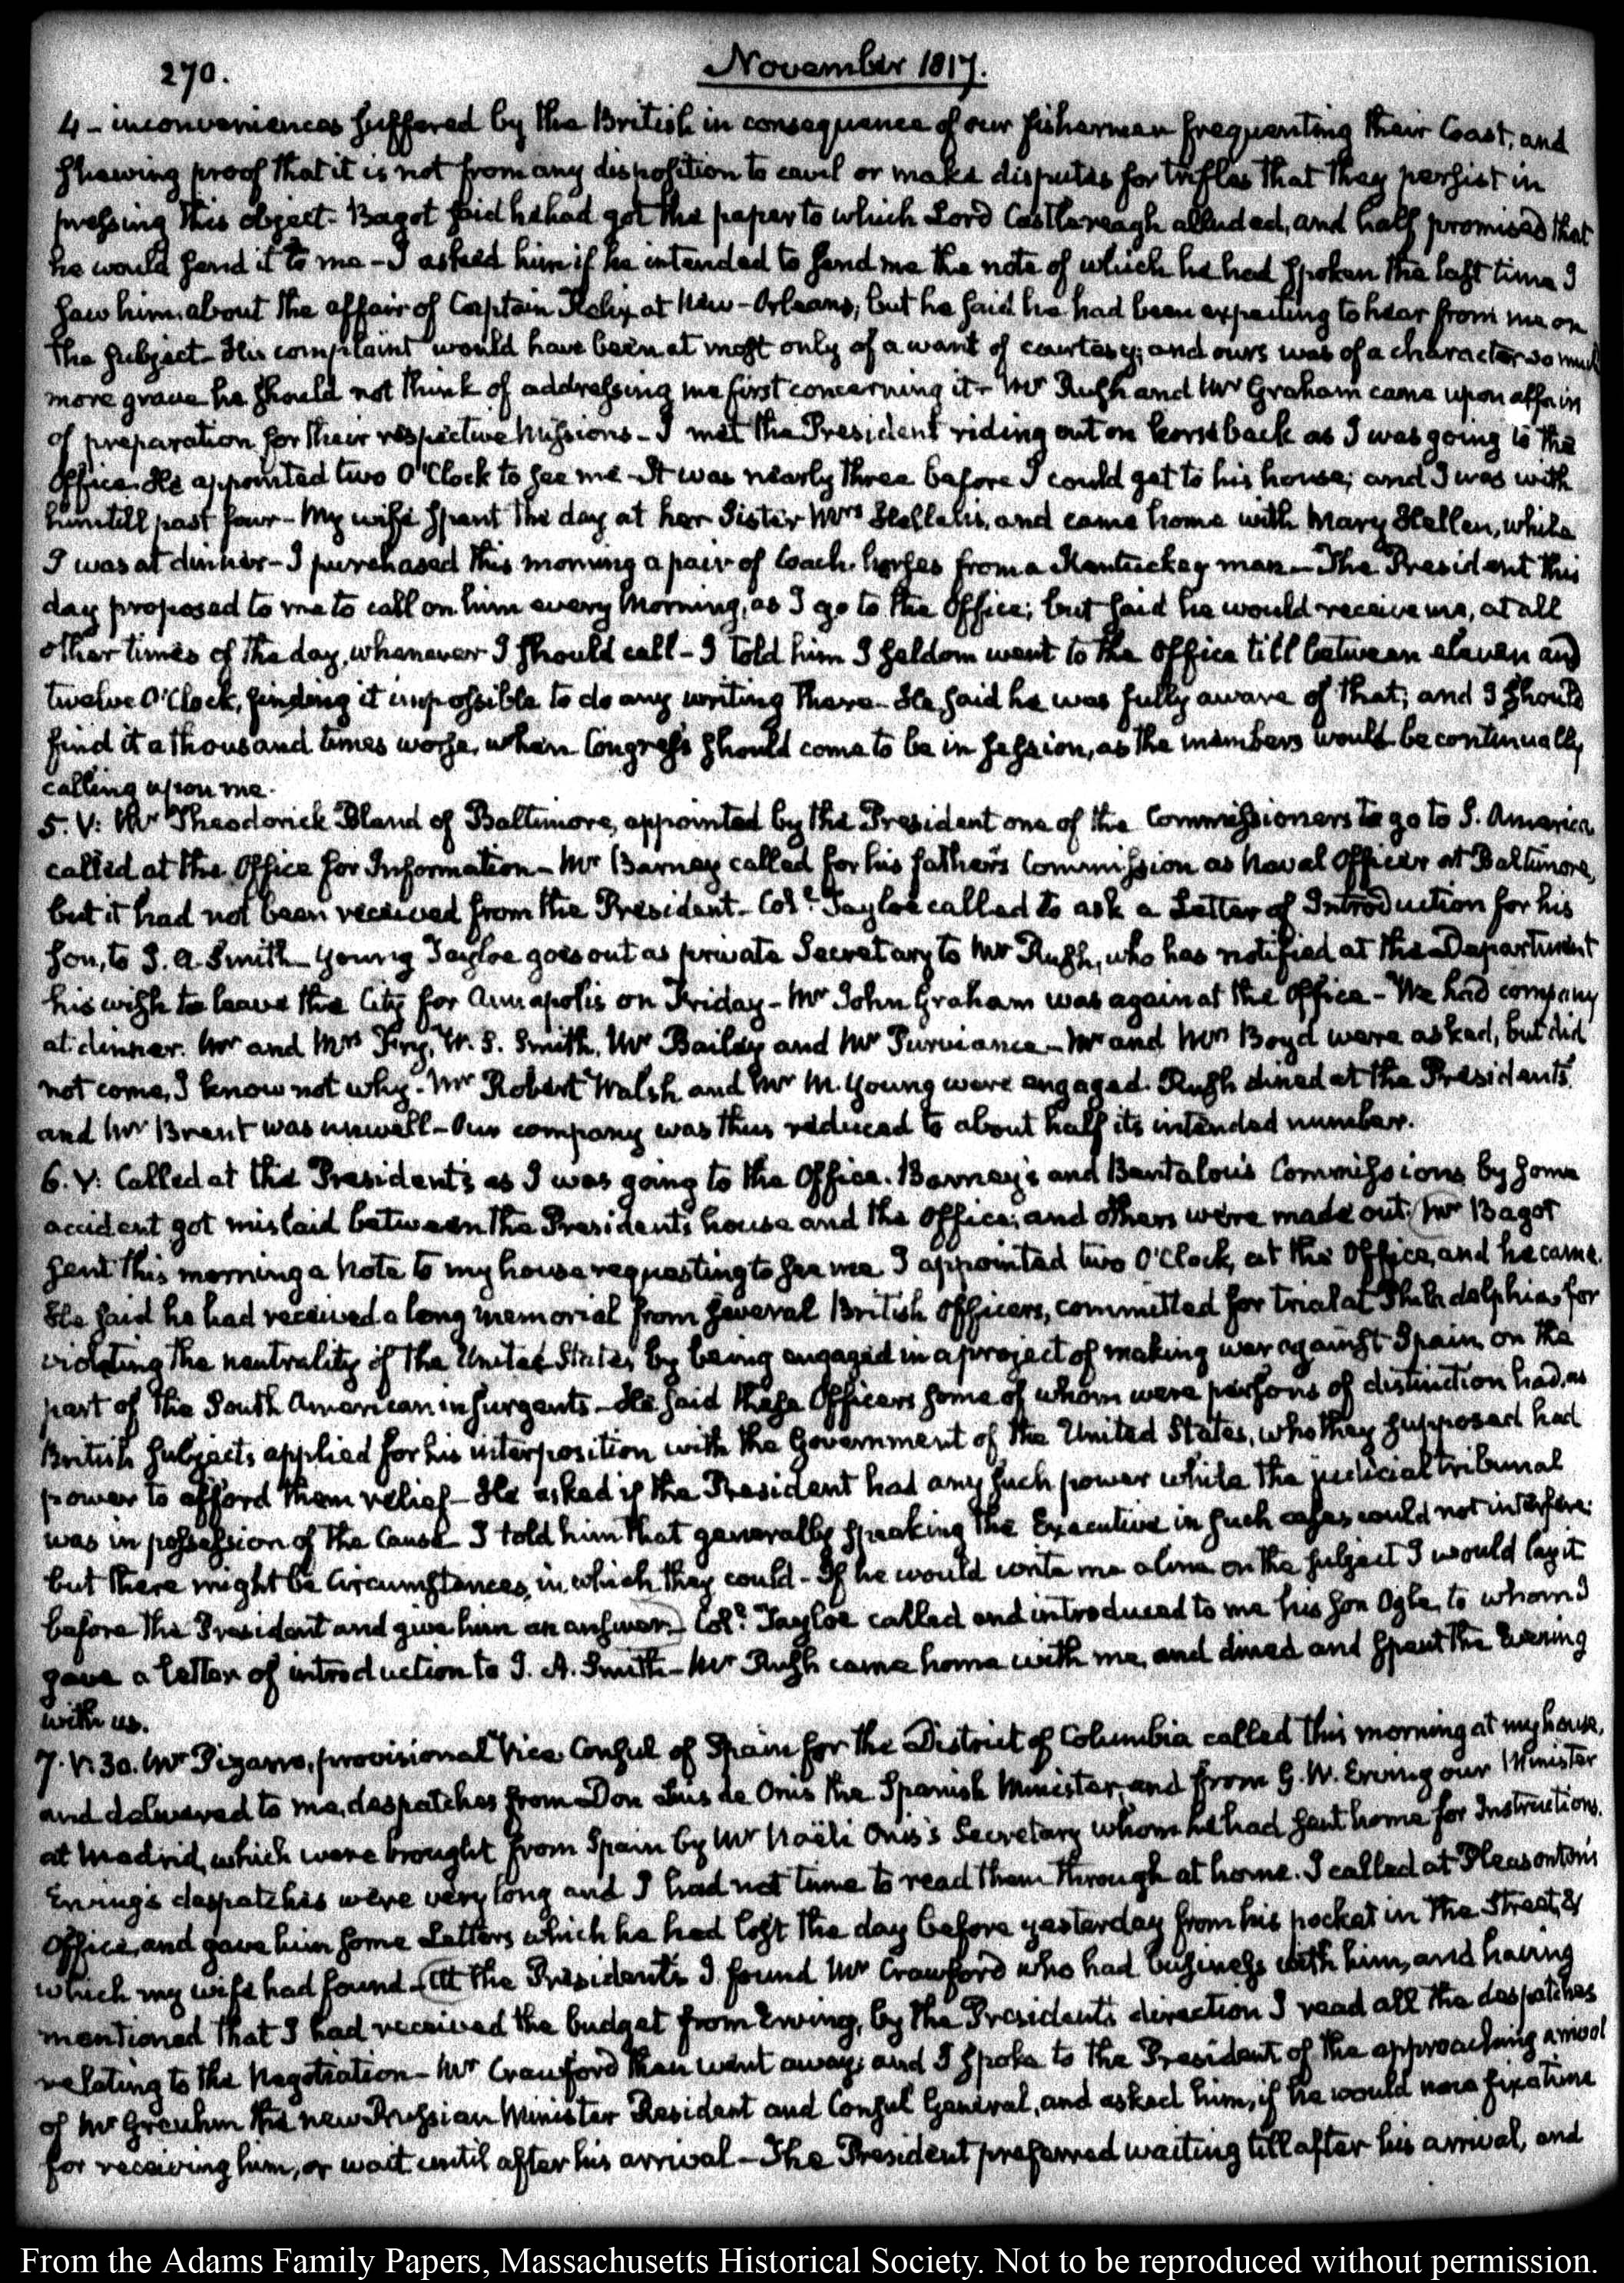 270.
November 1817.
4 - inconveniences suffered by the British in consequence of our fishermen frequenting their Coast, and
shewing proof that it is not from any disposition to cavil or make disputes for trifles that they persist in
pressing this object - Bagot said he had got the paper to which Lord Castlereagh alluded, and half promised that
he would send it to me - I asked him if he intended to send me the note of which he had spoken the last time I
saw him about the affair of Captain at New-Orleans; but he said he had been expecting to hear from me on
the subject - His complaint would have been at most only of a want of courtesy; and ours was of a character so much
more grave he should not think of addressing me first concerning it - Mr Rush and Mr Graham came upon affairs
of preparation for their respective Missions - I met the President riding out on horseback as I was going to the
Office. He appointed two O'Clock to see me - It was nearly three before I could get to his house; and I was with
him till past four - My wife spent the day at her Sister Mrs Hellen's, and came home with Mary Hellen, while
I was at dinner - I purchased this morning a pair of Coach-horses from a Kentuckey man - The President this
day proposed to me to call on him every Morning, as I go to the Office; but said he would receive me, at all
other times of the day, whenever I should call - I told him I seldom went to the Office till between eleven and
twelve O'Clock, finding it impossible to do any writing there - He said he was fully aware of that; and I should
find it a thousand times worse, when Congress should come to be in session, as the members would be continually
calling upon me.
5. V: Mr Theodorick Bland of Baltimore, appointed by the President one of the Commissioners to go to S. America
called at the Office for Information - Mr Barney called for his father's Commission as Naval Officer at Baltimore,
but it had not been received from the President - Coll. Tayloe called to ask a Letter of Introduction for his
Son, to J. A. Smith - Young Tayloe goes out as private Secretary to Mr Rush, who has notified at the Department
his wish to leave the City for Annapolis on Friday - Mr John Graham was again at the Office - We had company
at dinner. Mr and Mrs Frye, W. S. Smith, Mr Bailey and Mr Purviance - Mr and Mrs Boyd were asked, but did
not come, I know not why. Mr Robert Walsh and Mr M. Young were engaged. Rush dined at the Presidents
and Mr Brent was unwell - Our company was thus reduced to about half its intended number.
6. V: Called at the President's as I was going to the Office. Barney's and Bentalou's Commissions by some
accident got mislaid between the Presidents house and the Office; and others were made out. Mr Bagot
sent this morning a Note to my house requesting to see me. I appointed two O'Clock, at the Office, and he came.
He said he had received a long memorial from several British Officers, committed for trial at Philadelphia, for
violating the neutrality of the United States, by being engaged in a project of making war against Spain, on the
part of the South American insurgents - He said these Officers some of whom were persons of distinction had, as
British Subjects applied for his interposition with the Government of the United States, who they supposed had
power to afford them relief - He asked if the President had any such power while the judicial tribunal
was in possession of the Cause - I told him that generally speaking the Executive in such cases could not interfere:
but there might be Circumstances, in which they could - If he would write me a line on the subject I would lay it
before the President and give him an answer - Coll. Tayloe called and introduced to me his Son Ogle, to whom I
gave a letter of introduction to J. A. Smith - Mr Rush came home with me, and dined and spent the Evening
with us.
7. V:30. Mr Pizarro, provisional Vice Consul of Spain for the District of Columbia called this morning at my house,
and delivered to me, despatches from Don Luis de Onis the Spanish Minister, and from G. W. Erving our Minister
at Madrid, which were brought from Spain by Mr Noëli Onis's Secretary whom he had sent home for Instructions.
Erving's despatches were very long and I had not time to read them through at home. I called at Pleasonton's
Office, and gave him some Letters which he had lost the day before yesterday from his pocket in the Street, &
which my wife had found - At the President's I found Mr Crawford who had business with him, and having
mentioned that I had received the budget from Erving, by the President's direction I read all the despatches
relating to the Negotiation - Mr Crawford then went away; and I spoke to the President of the approaching arrival
of Mr Greuhm the new Prussian Minister Resident and Consul General, and asked him, if he would now fix a time
for receiving him, or wait until after his arrival - The President preferred waiting till after his arrival, and
From the Adams Family Papers, Massachusetts Historical Society. Not to be reproduced without permission.